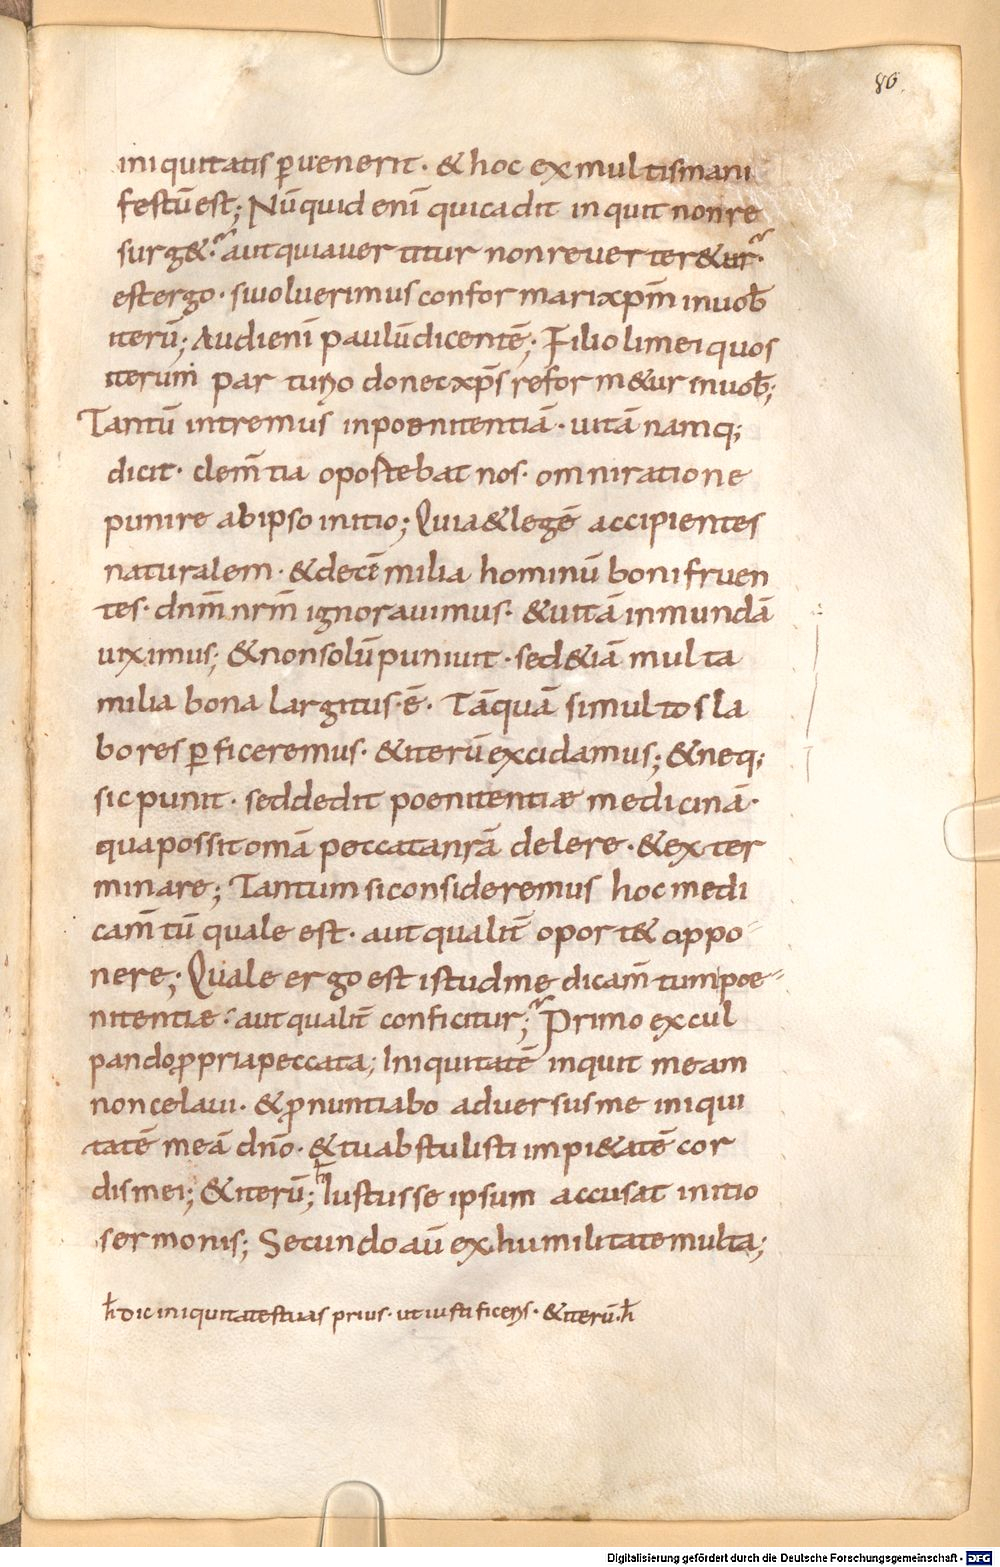 86.
iniquitatis ꝑuenerit· & hoc ex multis mani
festū est; Nūquid enī qui cadit inquit non re
surg&· aut qui auertitur non reuerter&ur·
est ergo· si uoluerimus conformari xp̄m in uob̄
iterū; Audi enī paulū dicentē; Filioli mei quos
iterum parturio donec xp̄s reform&ur in uob̄;
Tantū intremus in poenitentiā· uitā namq;
dicit· clem̄tia oportebat nos· omni ratione
punire ab ipso initio; Quia & legē accipientes
naturalem· & decē milia hominū boni fruen
tes· dn̄m nr̄m ignorauimus· & uitā inmundā
uiximus; & non solū puniuit· sed &iā multa
milia bona largitus·ē· Tāquā si multos la
bores ꝑficeremus· & iterū excidamus; & neq;
sic punit· sed dedit poenitentiæ medicinā·
qua possit om̄a peccata nr̄ā delere· & exter
minare; Tantum si consideremus hoc medi
cam̄tū quale est· aut qualit̄ oport& appo
nere; Quale ergo est istud medicam̄tum poe
nitentiæ· aut qualit̄ conficitur; Primo ex cul
pando ꝓpria peccata; Iniquitatē inquit meam
non celaui· & ꝓnuntiabo aduersus me iniqui
tatē meā dn̄o· & tu abstulisti impi&atē cor
dis mei; & iterū; h̄ Iustus se ipsum accusat initio
sermonis; Secundo aū ex humilitate multa;
h̄ Dic iniquitates tuas prius· ut iustificeris· & iterū·h̄
Digitalisierung gefördert durch die Deutsche Forschungsgemeinschaft - DFG